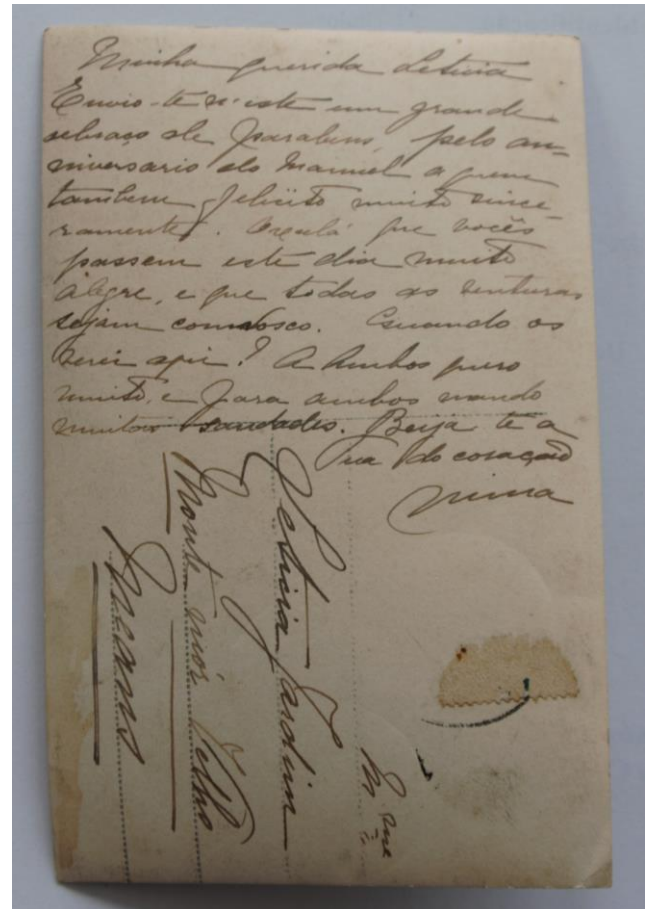 Minha querida Leticia
Envio-te n'este um grande
abraço de parabens, pelo an-
niversario do Manuel a quem
tambem felicito muito since-
ramente. Oxalá que vocês
passem este dia muito
alegre, e que todas as venturas
sejam comvosco. Quando os
verei aqui? A ambos quero
muito, e para ambos mando
muitas saudades. Beija-te a
tua do coração
Nina
M.me
Leticia Jardim
Monte mór Velho